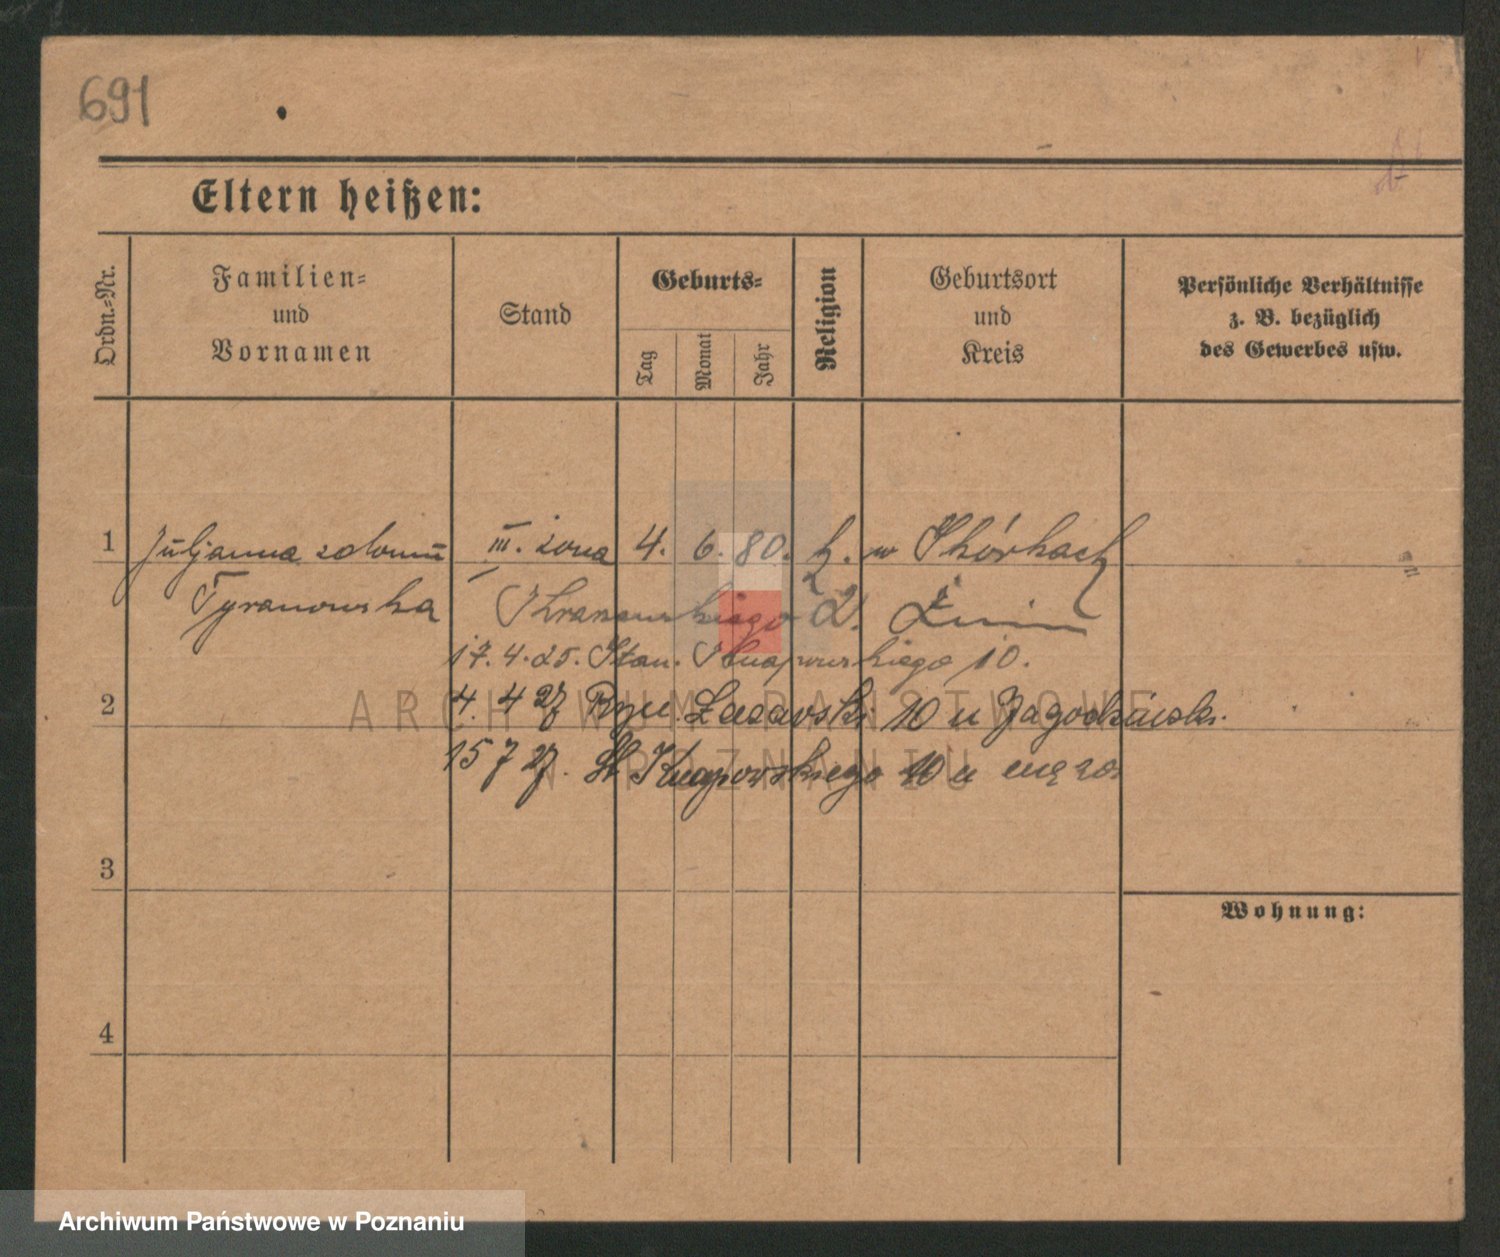 691
Eltern heißen:
Ordn.-Nr.
Familien- und Vornamen
Stand
Geburts-
Tag
Monat
Jahr
Religion
Geburtsort und Kreis
Persönliche Verhältnisse z. B. bezüglich des Gewerbes usw.
1 Juljanna III. żona 4. 6. 80. k. w Skórkach
Tyranowska Ż.
17. 4. 25. Stan. Knapowskiego 10.
2
4. 4 27 10 u
15 7 27. St. Knapowskiego 10 u męża
3
Wohnung:
4
ARCHIWUM PAŃSTWOWE
W POZNANIU
Archiwum Państwowe w Poznaniu